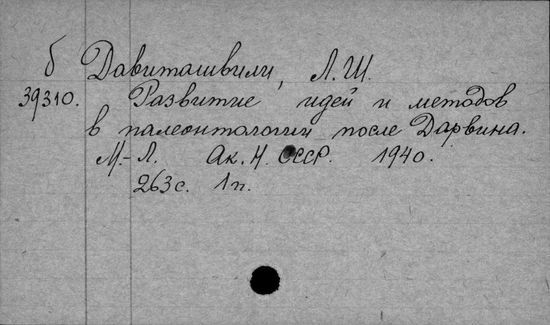 б Давиташвили, Л.Ш.
39310. Развитие идей и методов
в палеонтологии после Дарвина.
М.-Л. Ак. Н. СССР. 1940.
263с. 1п.